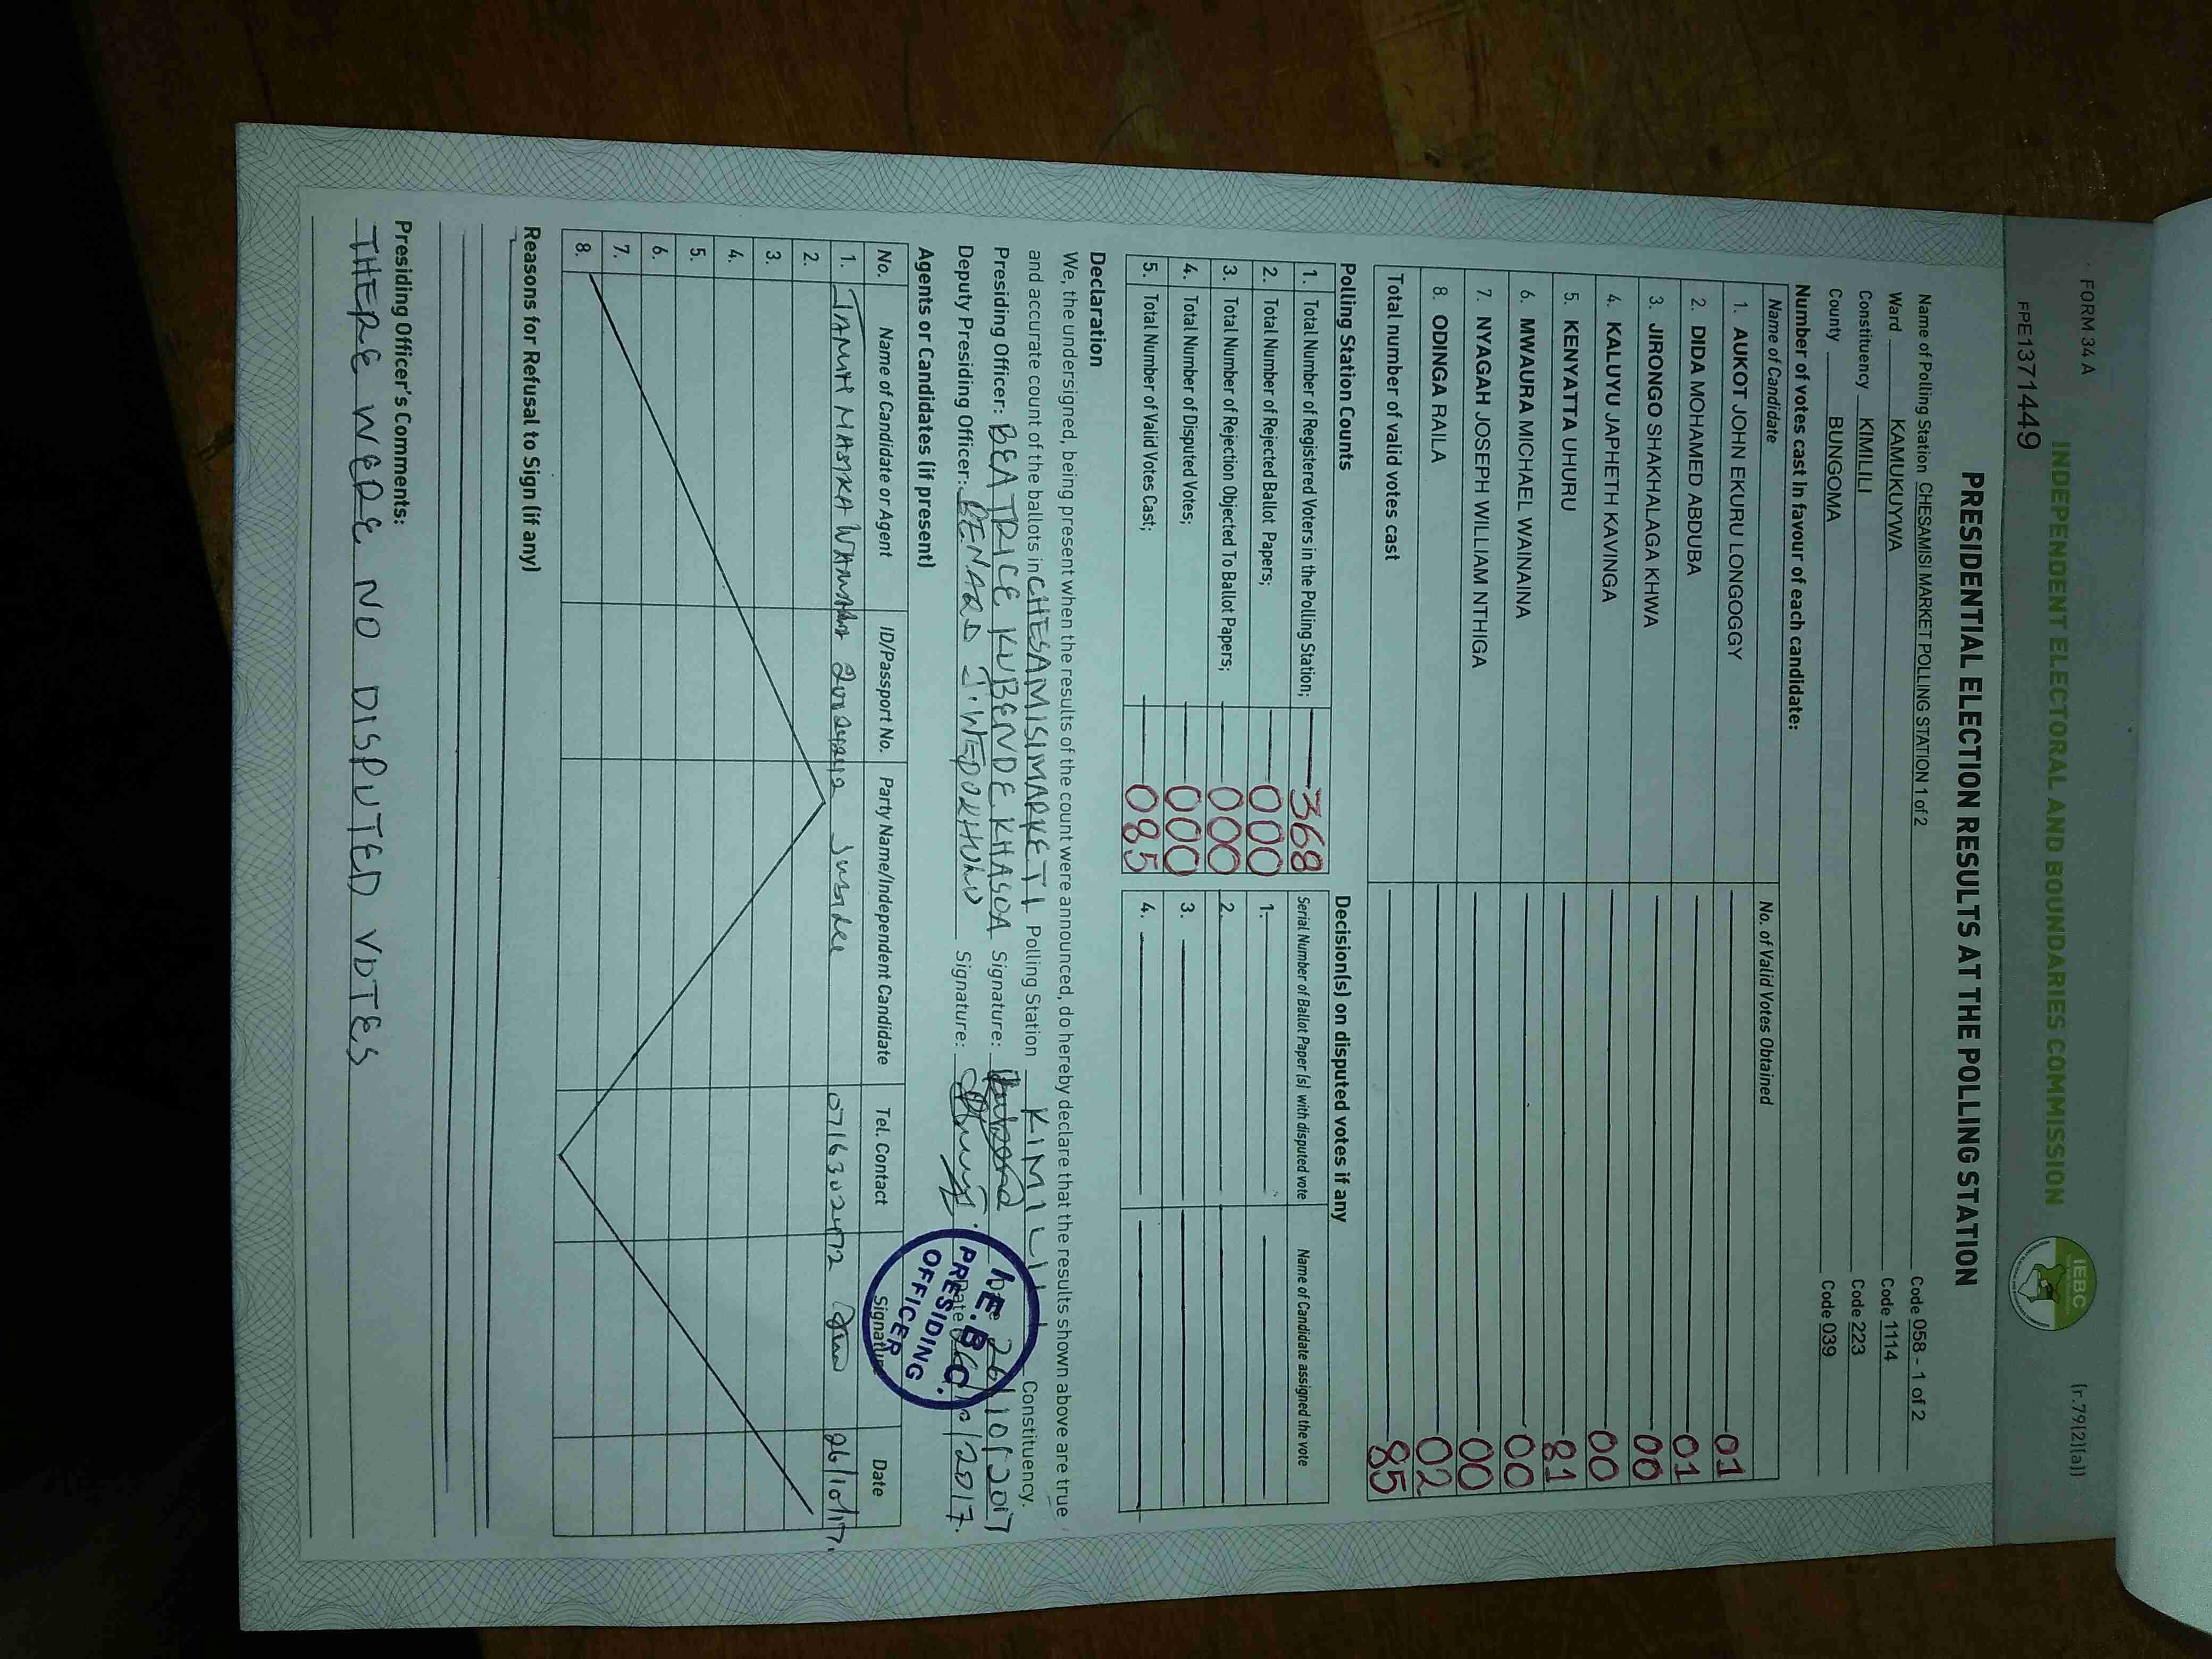 FORM 34 A
INDEPENDENT ELECTORAL AND BOUNDARIES COMMISSION
IEBC
(r.79(2)(a))
FPE1371449
PRESIDENTIAL ELECTION RESULTS AT THE POLLING STATION
Name of Polling Station CHESAMISI MARKET POLLING STATION 1 of 2 Code 058 - 1 of 2
Ward KAMUKUYWA Code 1114
Constituency KIMILILI Code 223
County BUNGOMA Code 039
Number of votes cast in favour of each candidate:
Name of Candidate No. of Valid Votes Obtained
1. AUKOT JOHN EKURU LONGOGGY 01
2. DIDA MOHAMED ABDUBA 01
3. JIRONGO SHAKHALAGA KHWA 00
4. KALUYU JAPHETH KAVINGA 00
5. KENYATTA UHURU 81
6. MWAURA MICHAEL WAINAINA 00
7. NYAGAH JOSEPH WILLIAM NTHIGA 00
8. ODINGA RAILA 02
Total number of valid votes cast 85
Polling Station Counts
1. Total Number of Registered Voters in the Polling Station; 368
2. Total Number of Rejected Ballot Papers; 000
3. Total Number of Rejection Objected To Ballot Papers; 000
4. Total Number of Disputed Votes; 000
5. Total Number of Valid Votes Cast; 085
Decision(s) on disputed votes if any
Serial Number of Ballot Paper (s) with disputed vote Name of Candidate assigned the vote
1.
2.
3.
4.
Declaration
We, the undersigned, being present when the results of the count were announced, do hereby declare that the results shown above are true
and accurate count of the ballots in CHESAMISI MARKET 1 Polling Station KIMILILI Constituency.
Presiding Officer: BEATRICE KUBENDE KHASOA Signature: Date 26/10/2017
Deputy Presiding Officer: BENARD Signature: Date 26/10/2017.
I.E.B.C.
PRESIDING
OFFICER
Agents or Candidates (if present)
No. Name of Candidate or Agent ID/Passport No. Party Name/Independent Candidate Tel. Contact Signature Date
1. MASIKA 0716302472 26/10/17.
2.
3.
4.
5.
6.
7.
8.
Reasons for Refusal to Sign (if any)
Presiding Officer's Comments:
THERE WERE NO DISPUTED VOTES